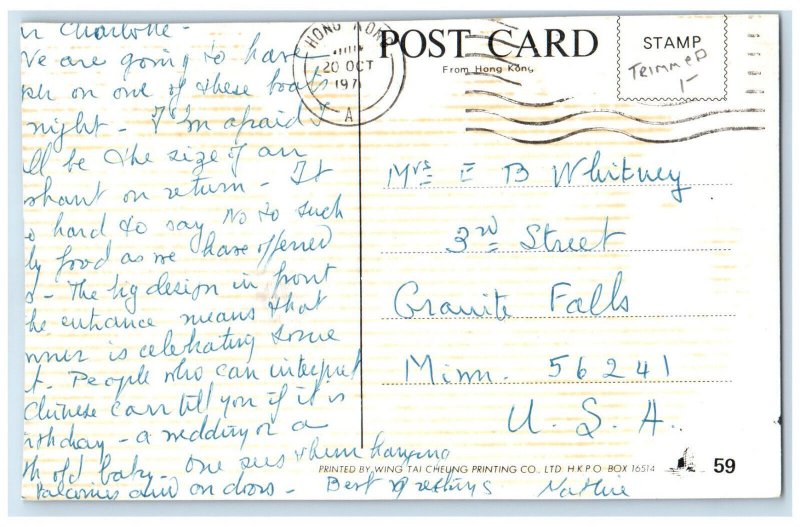 Charlotte -
We are going to have
on one of these boats
night - I'm afraid I
ll be the size of an
phant on return - It
hard to say No to such
ly food as we have offered
The big design in front
he entrance means that
nner is celebrating some
t. People who can interpret
Chinese can tell you if it is
rthday - a wedding or a
th old baby. One sees them hanging
balconies and on doors - Best greetings
HONG KONG
20 OCT
1971
A
POST CARD
From Hong Kong
STAMP
TRIMMED
1-
Mrs E B Whitney
3rd Street
Granite Falls
Minn. 56241
U.S.A.
PRINTED BY WING TAI CHEUNG PRINTING CO., LTD. H.K.P.O. BOX 16514
59